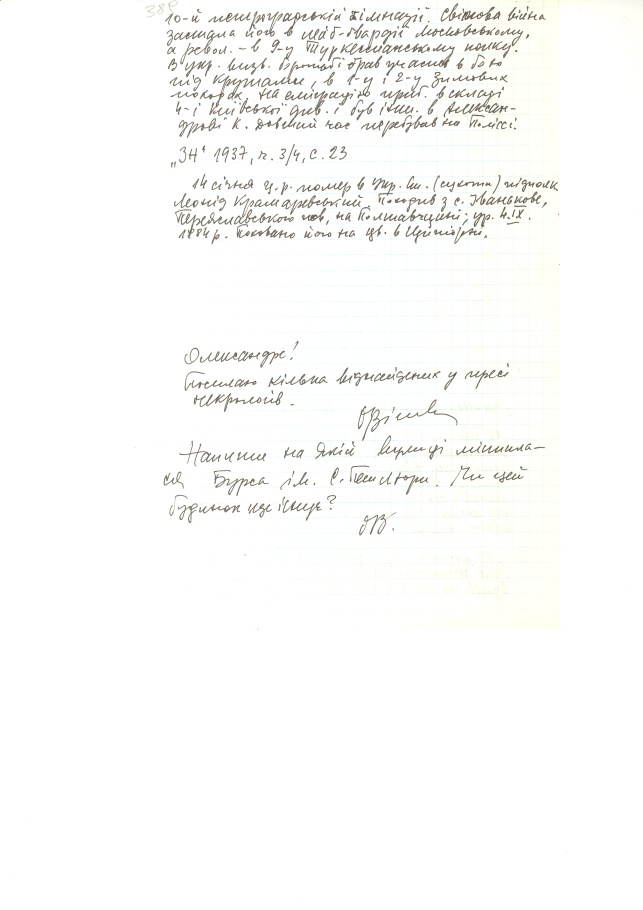 38Р
10-й петроградській гімназії. Світова війна
застала його в лейб-гвардії Московському,
а револ. – в 9-у Туркестанському полку.
В укр. визв. боротьбі брав участь в бою
під Крутами, в 1-у і 2-у Зимових
походах. На еміграцію приб. в складі
4-ї Київської див. і був інт. в Алексан-
дрові К. Довший час перебував на Поліссі.
„ЗН" 1937, ч. 3/4, с. 23
14 січня ц.р. помер в Укр. Ст. (сухоти) підполк
Леонід Крамаревський. Походив з с. Іванькове,
Переяславського пов, на Полтавщині, ур. 4.IX.
1884 р. Поховано його на цв. в Щипіорні.
Олександре!
Посилаю кілька віднайдених у пресі
некрологів.
Напиши на якій вулиці містила-
ся Бурса ім. С. Петлюри. Чи цей
будинок ще існує?